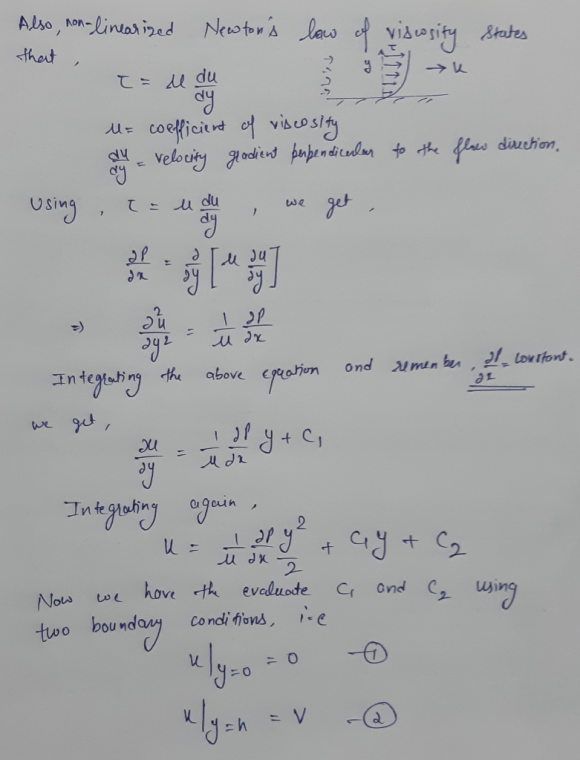 Also, non-linearized Newton's law of viscosity states
that,
τ = μ du/dy
τ
y
→ u
μ = coefficient of viscosity
du/dy = velocity gradient perpendicular to the flow direction.
Using, τ = μ du/dy, we get,
∂P/∂x = ∂/∂y [μ ∂u/∂y]
⇒ ∂²u/∂y² = 1/μ ∂P/∂x
Integrating the above equation and remember, ∂P/∂x = constant.
we get,
∂u/∂y = 1/μ ∂P/∂x y + C₁
Integrating again,
u = 1/μ ∂P/∂x y²/2 + C₁y + C₂
Now we have the evaluate C₁ and C₂ using
two boundary conditions, i.e
u|y=0 = 0 -①
u|y=h = V -②